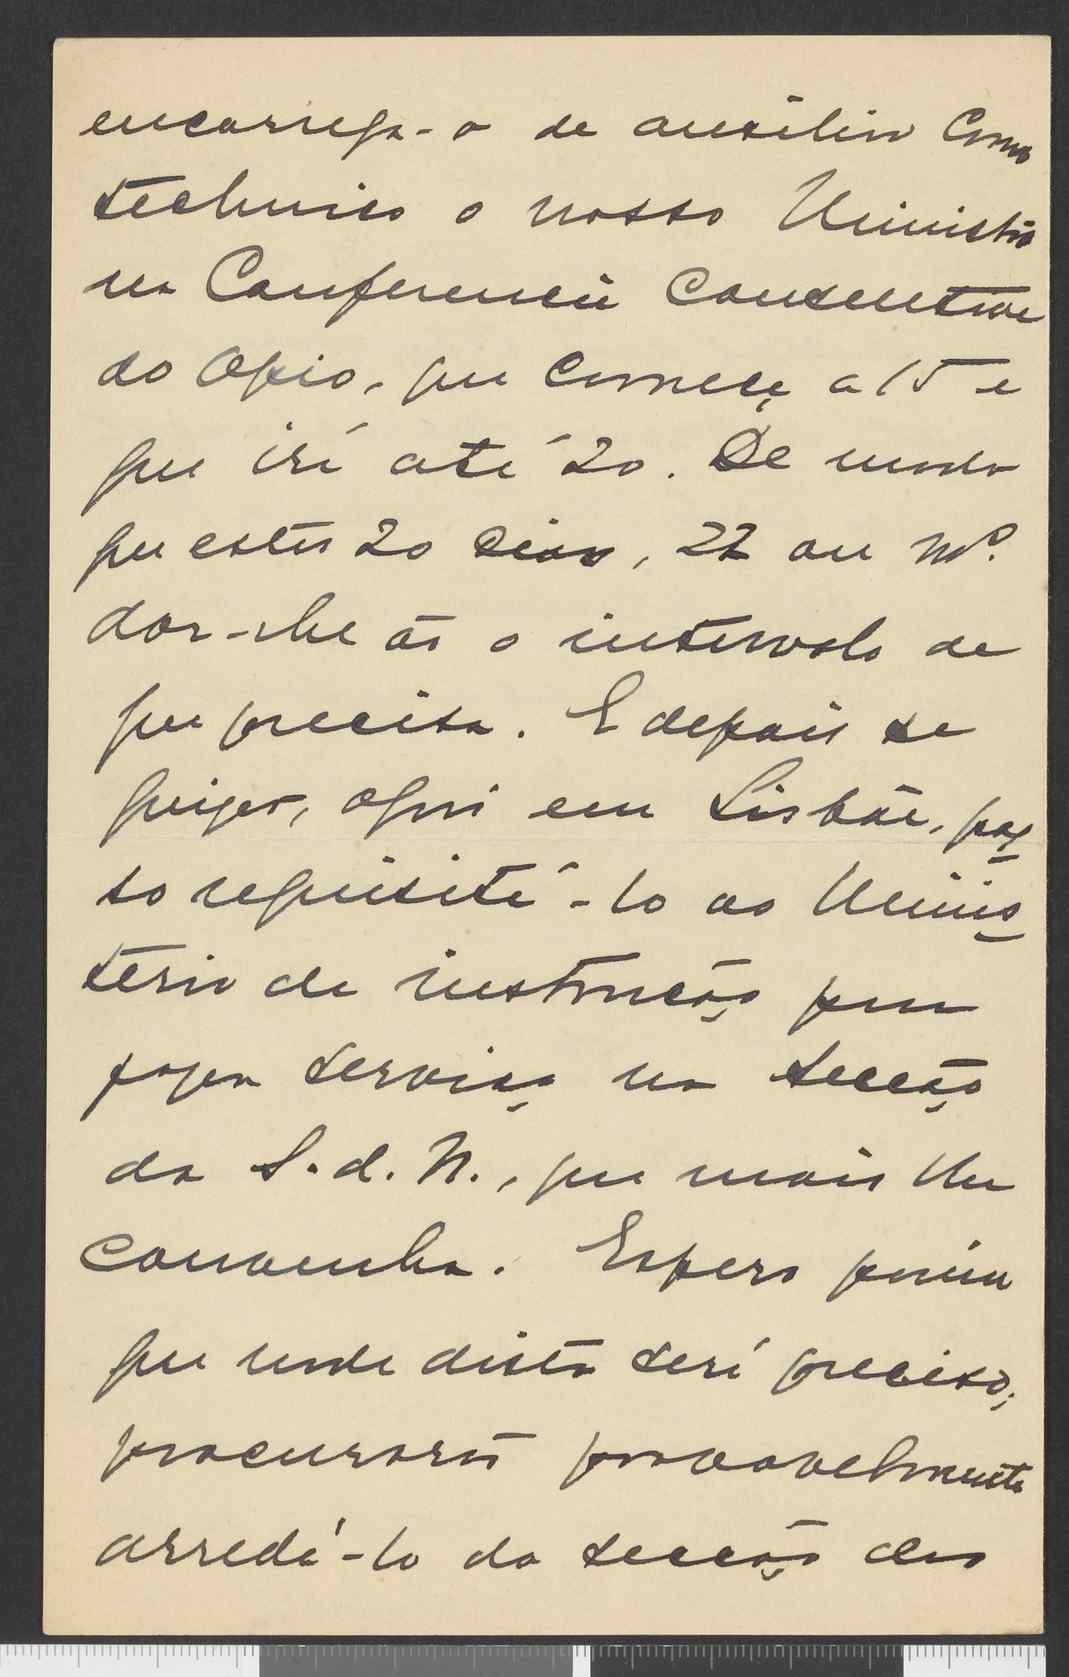 encarrega-o de auxiliar como
technico o nosso Ministro
na Conferencia Consultiva
do Opio, que começa a 15 e
que irá até 20. De modo
que estes 20 dias, 22 ou m.º
dar-lhe ão o intervalo de
que precisa. E depois se
quizer, aqui em Lisbôa, pos
so requisitá-lo ao Minis
terio de instrucção para
fazer serviço na secção
da S. d. N., que mais lhe
convenha. Espero porém
que nada disto será preciso;
procurarão provavelmente
arredá-lo da secção dos